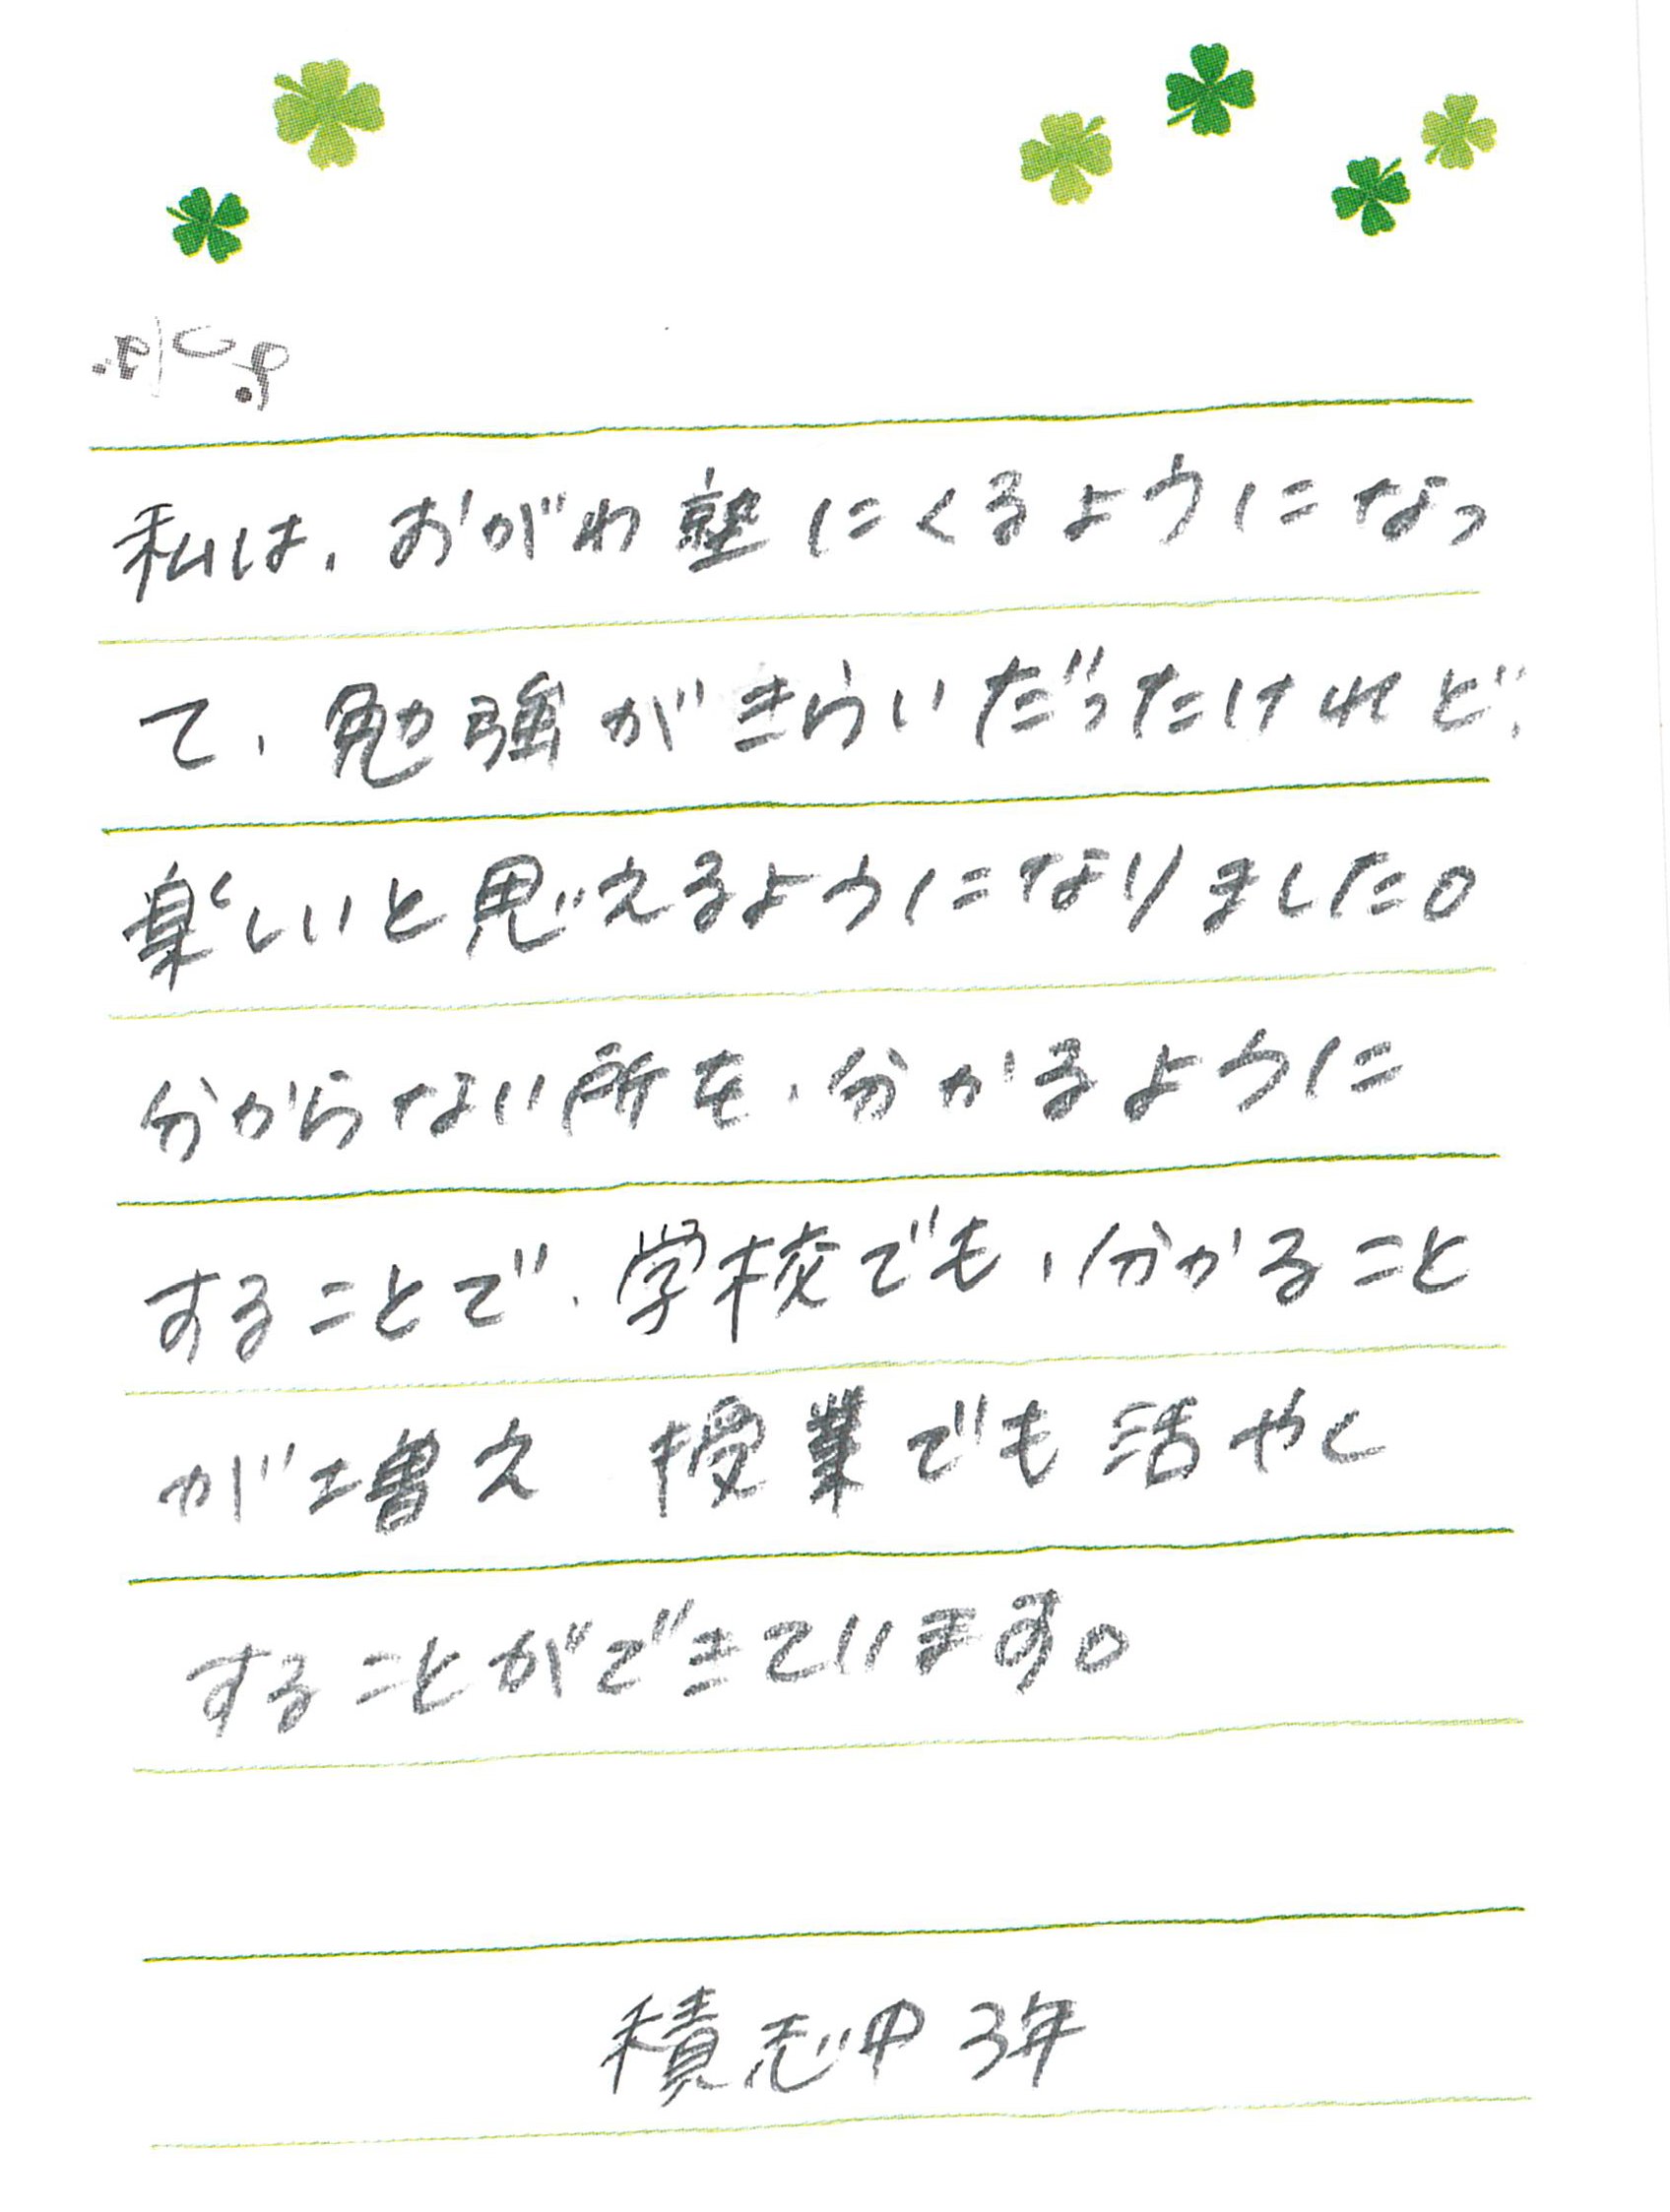 私は、おがわ塾にくるようになっ
て、勉強がきらいだったけれど、
楽しいと思えるようになりました。
分からない所を、分かるように
することで、学校でも、分かること
が増え 授業でも活やく
することができています。
積志中3年